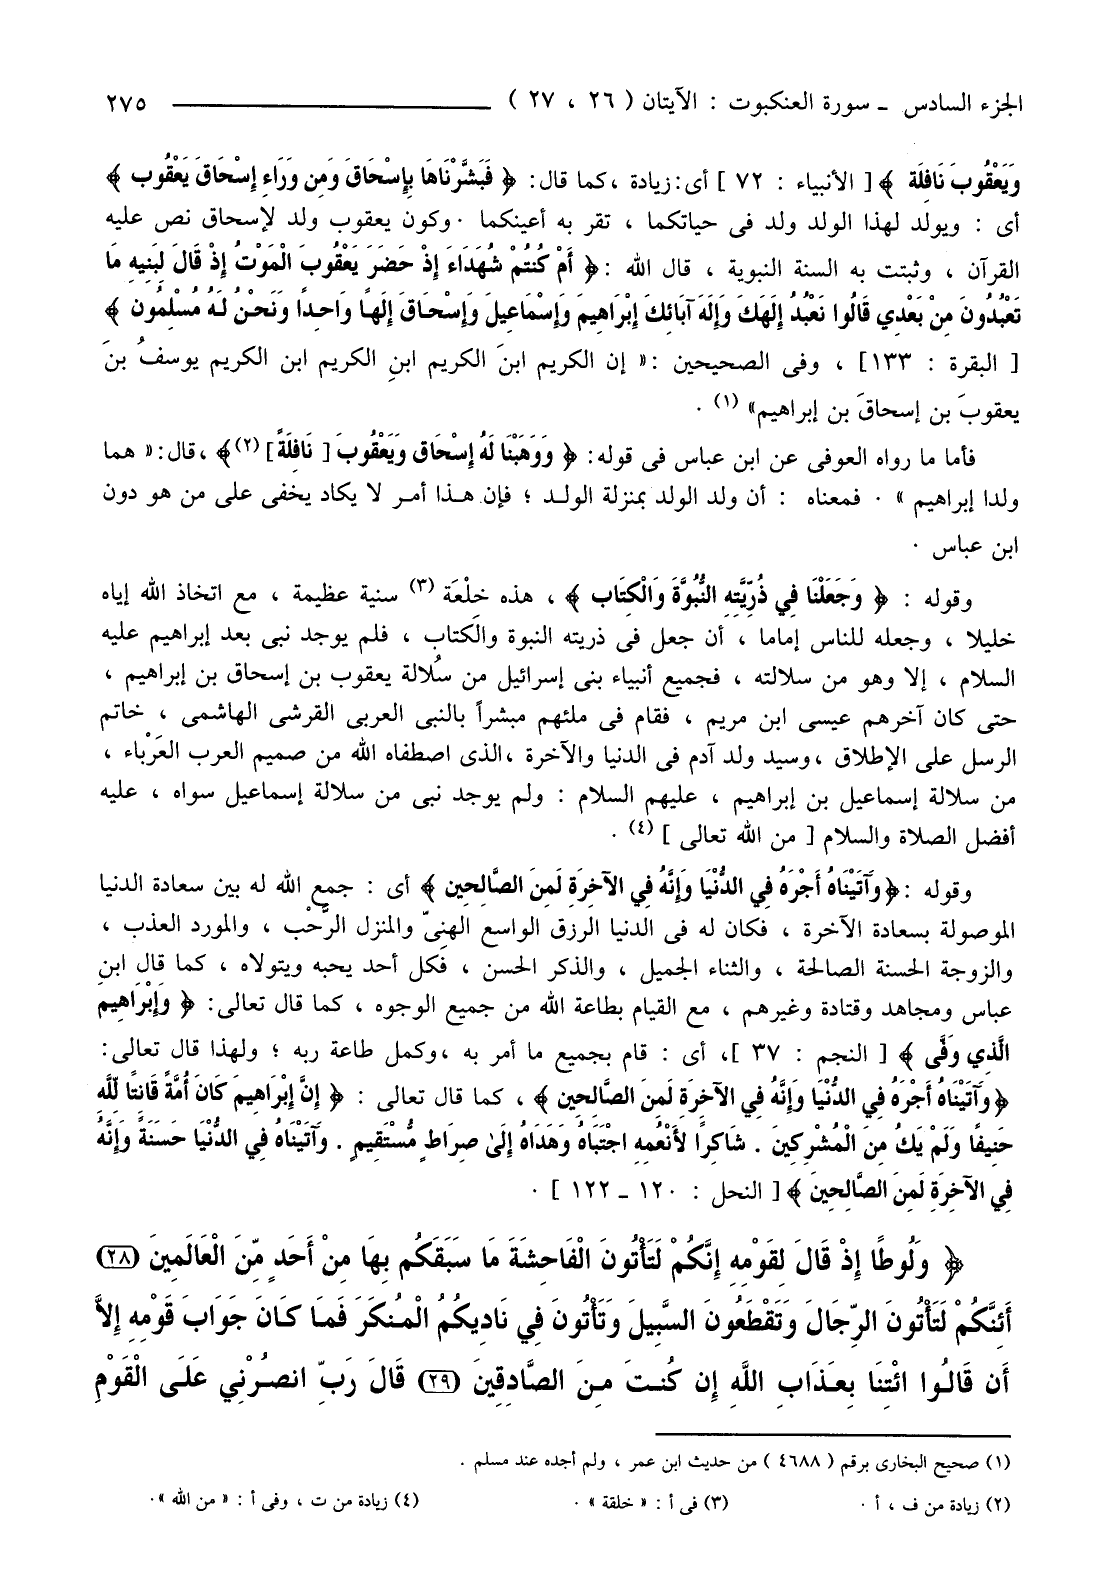 الجزء السادس ـ سورة العنكبوت : الآيتان ( ٢٦ ، ٢٧ ) ــــــــــــــــــــ ٢٧٥
وَيَعْقُوبَ نَافِلَة ﴾ [ الأنبياء : ٧٢ ] أى: زيادة ،كما قال: ﴿ فَبَشَّرْنَاهَا بِإِسْحَاقَ وَمِن وَرَاءِ إِسْحَاقَ يَعْقُوب ﴾
أى : ويولد لهذا الولد ولد فى حياتكما ، تقر به أعينكما ٠ وكون يعقوب ولد لإسحاق نص عليه
القرآن ، وثبتت به السنة النبوية ، قال الله :﴿ أَمْ كُنتُمْ شُهَدَاءَ إِذْ حَضَرَ يَعْقُوبَ الْمَوْتُ إِذْ قَالَ لِبَنِيهِ مَا
تَعْبُدُونَ مِنْ بَعْدِي قَالُوا نَعْبُدُ إِلَهَكَ وَإِلَهَ آبَائِكَ إِبْرَاهِيمَ وَإِسْمَاعِيلَ وَإِسْحَاقَ إِلَهًا وَاحِدًا وَنَحْنُ لَهُ مُسْلِمُون ﴾
[ البقرة : ١٣٣] ، وفى الصحيحين :« إن الكريم ابنَ الكريم ابنِ الكريم ابن الكريم يوسفُ بنَ
يعقوبَ بن إسحاقَ بن إبراهيم» (١) ٠
فأما ما رواه العوفى عن ابن عباس فى قوله: ﴿ وَوَهَبْنَا لَهُ إِسْحَاق وَيَعْقُوبَ [ نَافِلَةً ] (٢)﴾ ،قال:« هما
ولدا إبراهيم » ٠ فمعناه : أن ولد الولد بمنزلة الولد ؛ فإن هذا أمر لا يكاد يخفى على من هو دون
ابن عباس ٠
وقوله : ﴿ وَجَعَلْنَا فِي ذُرِّيَّتِهِ النُّبُوَّةَ وَالْكِتَاب ﴾ ، هذه خِلْعَة (٣) سنية عظيمة ، مع اتخاذ الله إياه
خليلا ، وجعله للناس إماما ، أن جعل فى ذريته النبوة والكتاب ، فلم يوجد نبى بعد إبراهيم عليه
السلام ، إلا وهو من سلالته ، فجميع أنبياء بنى إسرائيل من سُلالة يعقوب بن إسحاق بن إبراهيم ،
حتى كان آخرهم عيسى ابن مريم ، فقام فى ملئهم مبشراً بالنبى العربى القرشى الهاشمى ، خاتم
الرسل على الإطلاق ،وسيد ولد آدم فى الدنيا والآخرة ،الذى اصطفاه الله من صميم العرب العَرْباء ،
من سلالة إسماعيل بن إبراهيم ، عليهم السلام : ولم يوجد نبى من سلالة إسماعيل سواه ، عليه
أفضل الصلاة والسلام [ من الله تعالى ] (٤) ٠
وقوله :﴿وَآتَيْنَاهُ أَجْرَهُ فِي الدُّنْيَا وَإِنَّهُ فِي الآخِرَةِ لَمِنَ الصَّالِحِين ﴾ أى : جمع الله له بين سعادة الدنيا
الموصولة بسعادة الآخرة ، فكان له فى الدنيا الرزق الواسع الهنىّ والمنزل الرَّحْب ، والمورد العذب ،
والزوجة الحسنة الصالحة ، والثناء الجميل ، والذكر الحسن ، فكل أحد يحبه ويتولاه ، كما قال ابن
عباس ومجاهد وقتادة وغيرهم ، مع القيام بطاعة الله من جميع الوجوه ، كما قال تعالى: ﴿ وَإِبْرَاهِيمَ
الَّذِي وَفَّى ﴾ [ النجم : ٣٧ ]، أى : قام بجميع ما أمر به ،وكمل طاعة ربه ؛ ولهذا قال تعالى:
﴿وَآتَيْنَاهُ أَجْرَهُ فِي الدُّنْيَا وَإِنَّهُ فِي الآخِرَةِ لَمِنَ الصَّالِحِين ﴾ ، كما قال تعالى : ﴿ إِنَّ إِبْرَاهِيمَ كَانَ أُمَّةً قَانِتًا لِّلَّهِ
حَنِيفًا وَلَمْ يَكُ مِنَ الْمُشْرِكِينَ . شَاكِرًا لأَنْعُمِهِ اجْتَبَاهُ وَهَدَاهُ إِلَىٰ صِرَاطٍ مُّسْتَقِيمٍ . وَآتَيْنَاهُ فِي الدُّنْيَا حَسَنَةً وَإِنَّهُ
فِي الآخِرَةِ لَمِنَ الصَّالِحِينَ ﴾[ النحل : ١٢٠ ـ ١٢٢ ] ٠
﴿ وَلُوطًا إِذْ قَالَ لِقَوْمِهِ إِنَّكُمْ لَتَأْتُونَ الْفَاحِشَةَ مَا سَبَقَكُم بِهَا مِنْ أَحَدٍ مِّنَ الْعَالَمِينَ (٢٨)
أَئِنَّكُمْ لَتَأْتُونَ الرِّجَالَ وَتَقْطَعُونَ السَّبِيلَ وَتَأْتُونَ فِي نَادِيكُمُ الْمُنكَرَ فَمَا كَانَ جَوَابَ قَوْمِهِ إِلاَّ
أَن قَالُوا ائْتِنَا بِعَذَابِ اللَّهِ إِن كُنتَ مِنَ الصَّادِقِينَ (٢٩) قَالَ رَبِّ انصُرْنِي عَلَى الْقَوْمِ
(١) صحيح البخارى برقم ( ٤٦٨٨ ) من حديث ابن عمر ، ولم أجده عند مسلم .
(٢) زيادة من ف ، أ ٠ (٣) فى أ : « خلقة » ٠ (٤) زيادة من ت ، وفى أ : « من الله »٠